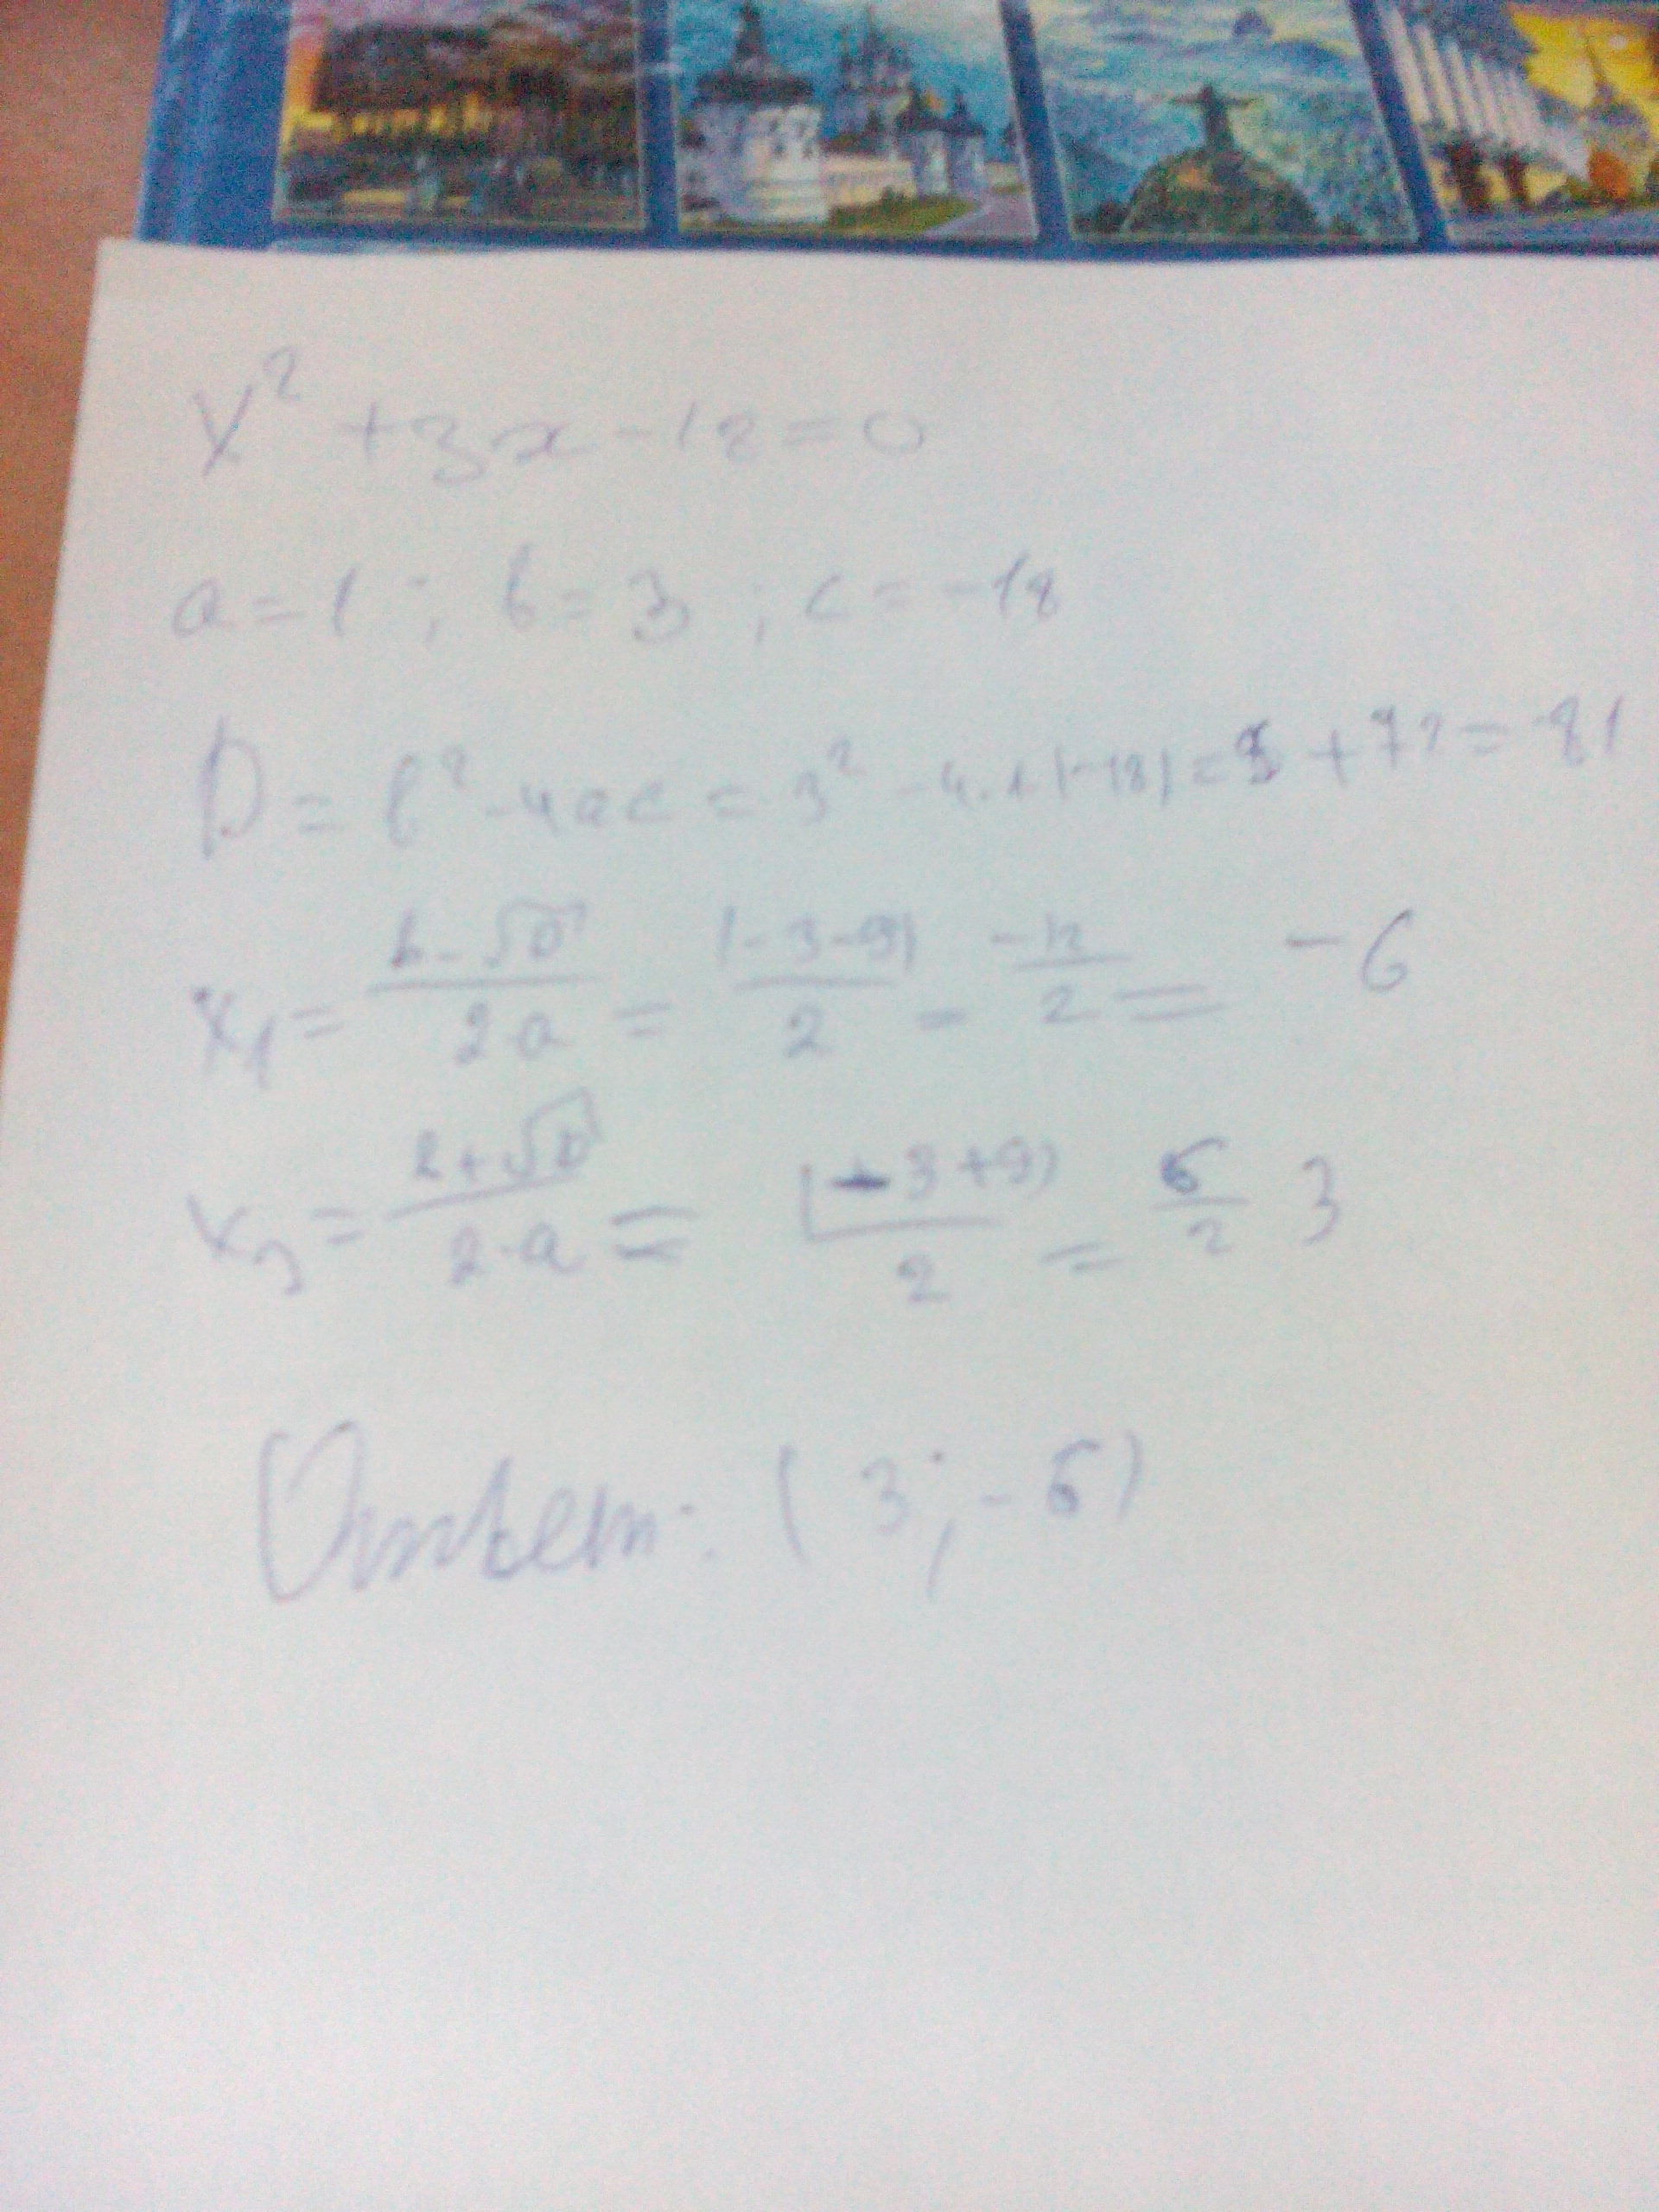 x² + 3x - 18 = 0
a = 1 ; b = 3 ; c = -18
D = b² - 4ac = 3² - 4·1(-18) = 9 + 72 = 81
x₁ = (b - √D)/(2a) = (-3-9)/2 = -12/2 = -6
x₂ = (b + √D)/(2·a) = (-3+9)/2 = 6/2 3
Ответ: (3; -6)